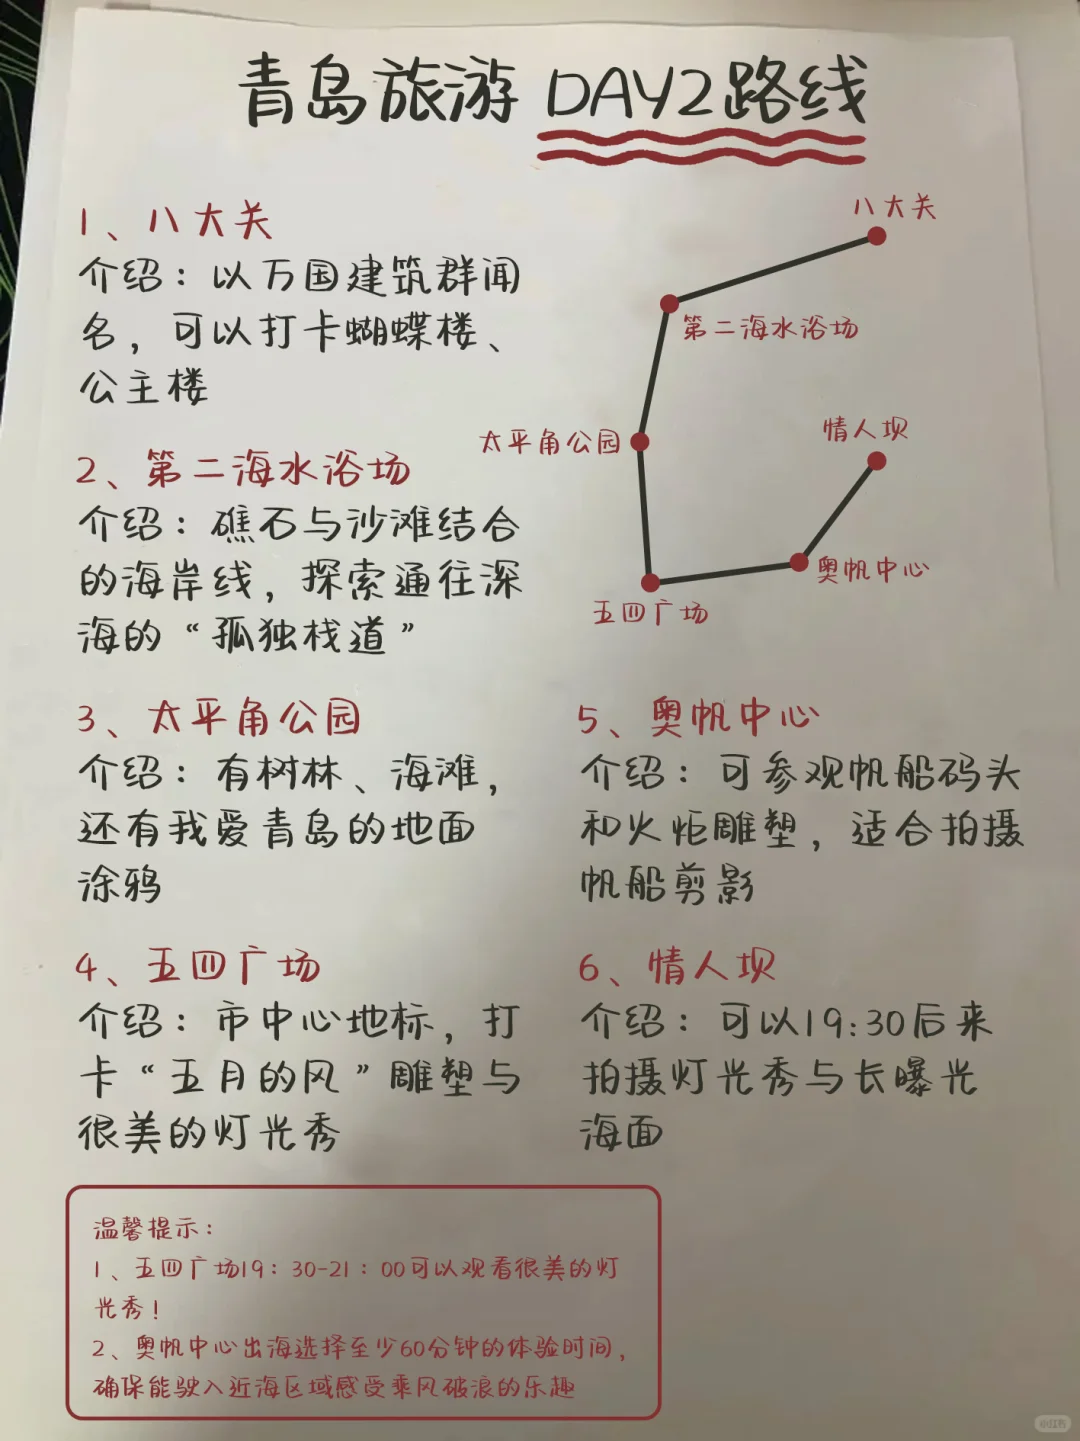 青岛旅游 DAY2路线
1、八大关
介绍：以万国建筑群闻
名，可以打卡蝴蝶楼、
公主楼
2、第二海水浴场
介绍：礁石与沙滩结合
的海岸线，探索通往深
海的“孤独栈道”
3、太平角公园
介绍：有树林、海滩，
还有我爱青岛的地面
涂鸦
4、五四广场
介绍：市中心地标，打
卡“五月的风”雕塑与
很美的灯光秀
八大关
第二海水浴场
太平角公园
情人坝
奥帆中心
五四广场
5、奥帆中心
介绍：可参观帆船码头
和火炬雕塑，适合拍摄
帆船剪影
6、情人坝
介绍：可以19:30后来
拍摄灯光秀与长曝光
海面
温馨提示：
1、五四广场19：30-21：00可以观看很美的灯
光秀！
2、奥帆中心出海选择至少60分钟的体验时间，
确保能驶入近海区域感受乘风破浪的乐趣
小红书